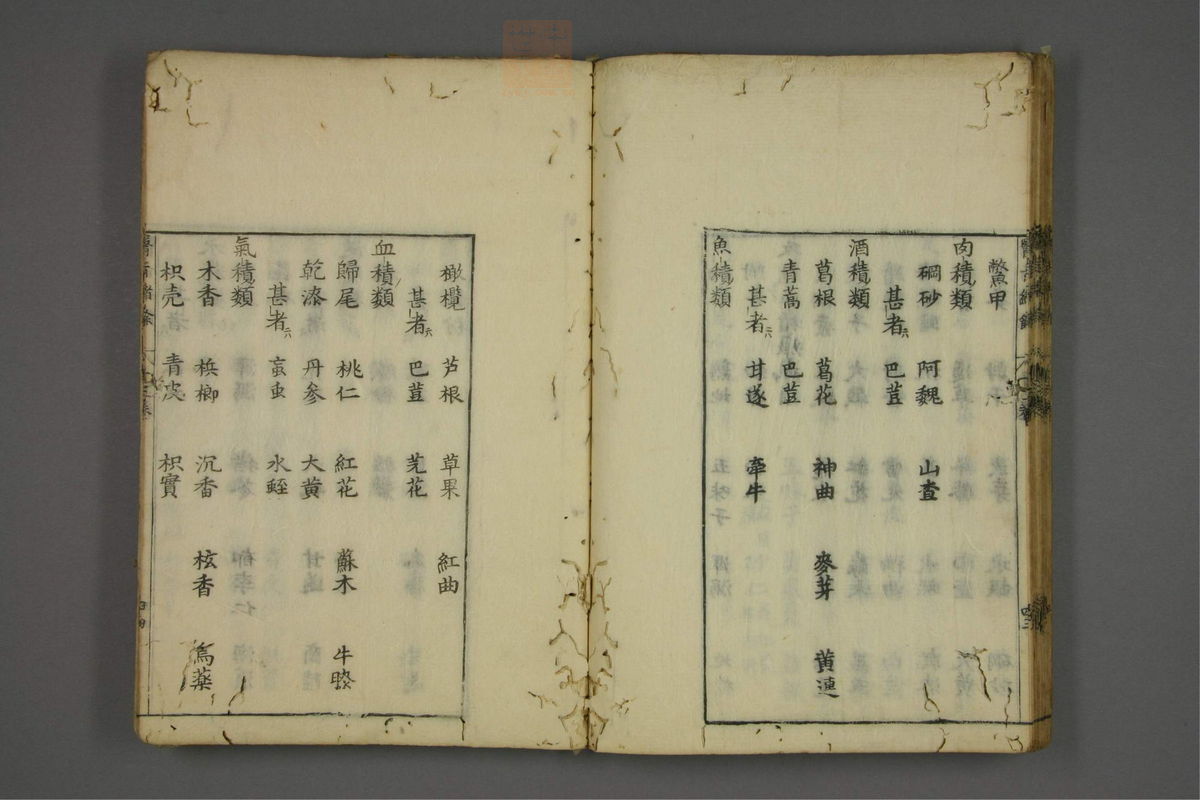 鱉甲
肉積類
硇砂 阿魏 山査
甚者六 巴荳
酒積類
葛根 葛花 神曲 麥芽 黃連
青蒿
甚者六 巴荳
甘遂 牽牛
魚積類
橄欖 芦根 草果 紅曲
甚者六 巴荳 芫花
血積類
歸尾 桃仁 紅花 蘇木 牛膝
乾漆 丹参 大黄
甚者六 䖟虫 水蛭
氣積類
木香 梹榔 沉香 𣏌香 烏薬
枳壳 青皮 枳實